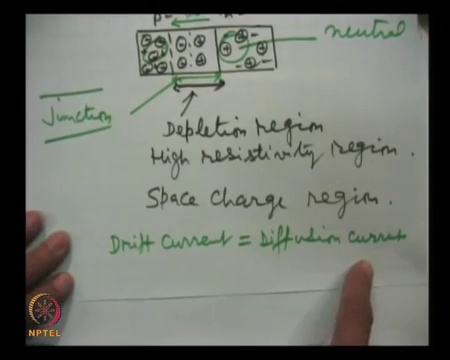 p-
neutral
Junction
Depletion region
High resistivity region.
Space Charge region.
Drift Current = Diffusion Current
NPTEL